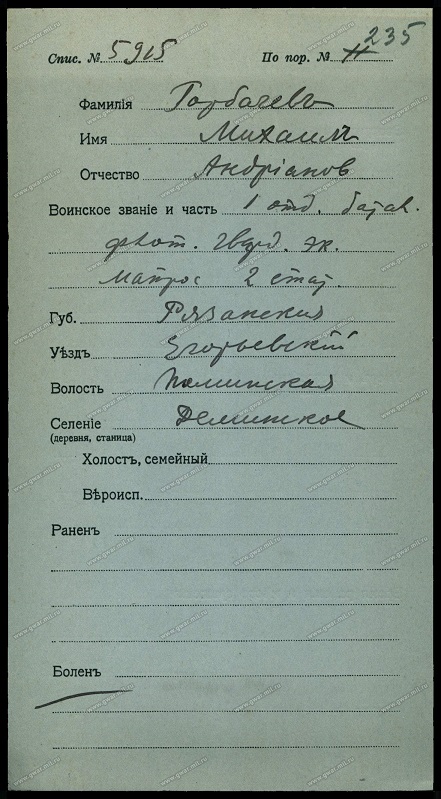 Спис. № 5915 По пор. № 11 235
Фамилія Горбачевъ
Имя Михаилъ
Отчество Андріанов
Воинское званіе и часть 1 отд. батал.
флот. гвард. эк.
матрос 2 стат.
Губ. Рязанская
Уѣздъ Егорьевскій
Волость
Селеніе
(деревня, станица)
Холостъ, семейный
Вѣроисп.
Раненъ
Боленъ
www.gwar.mil.ru